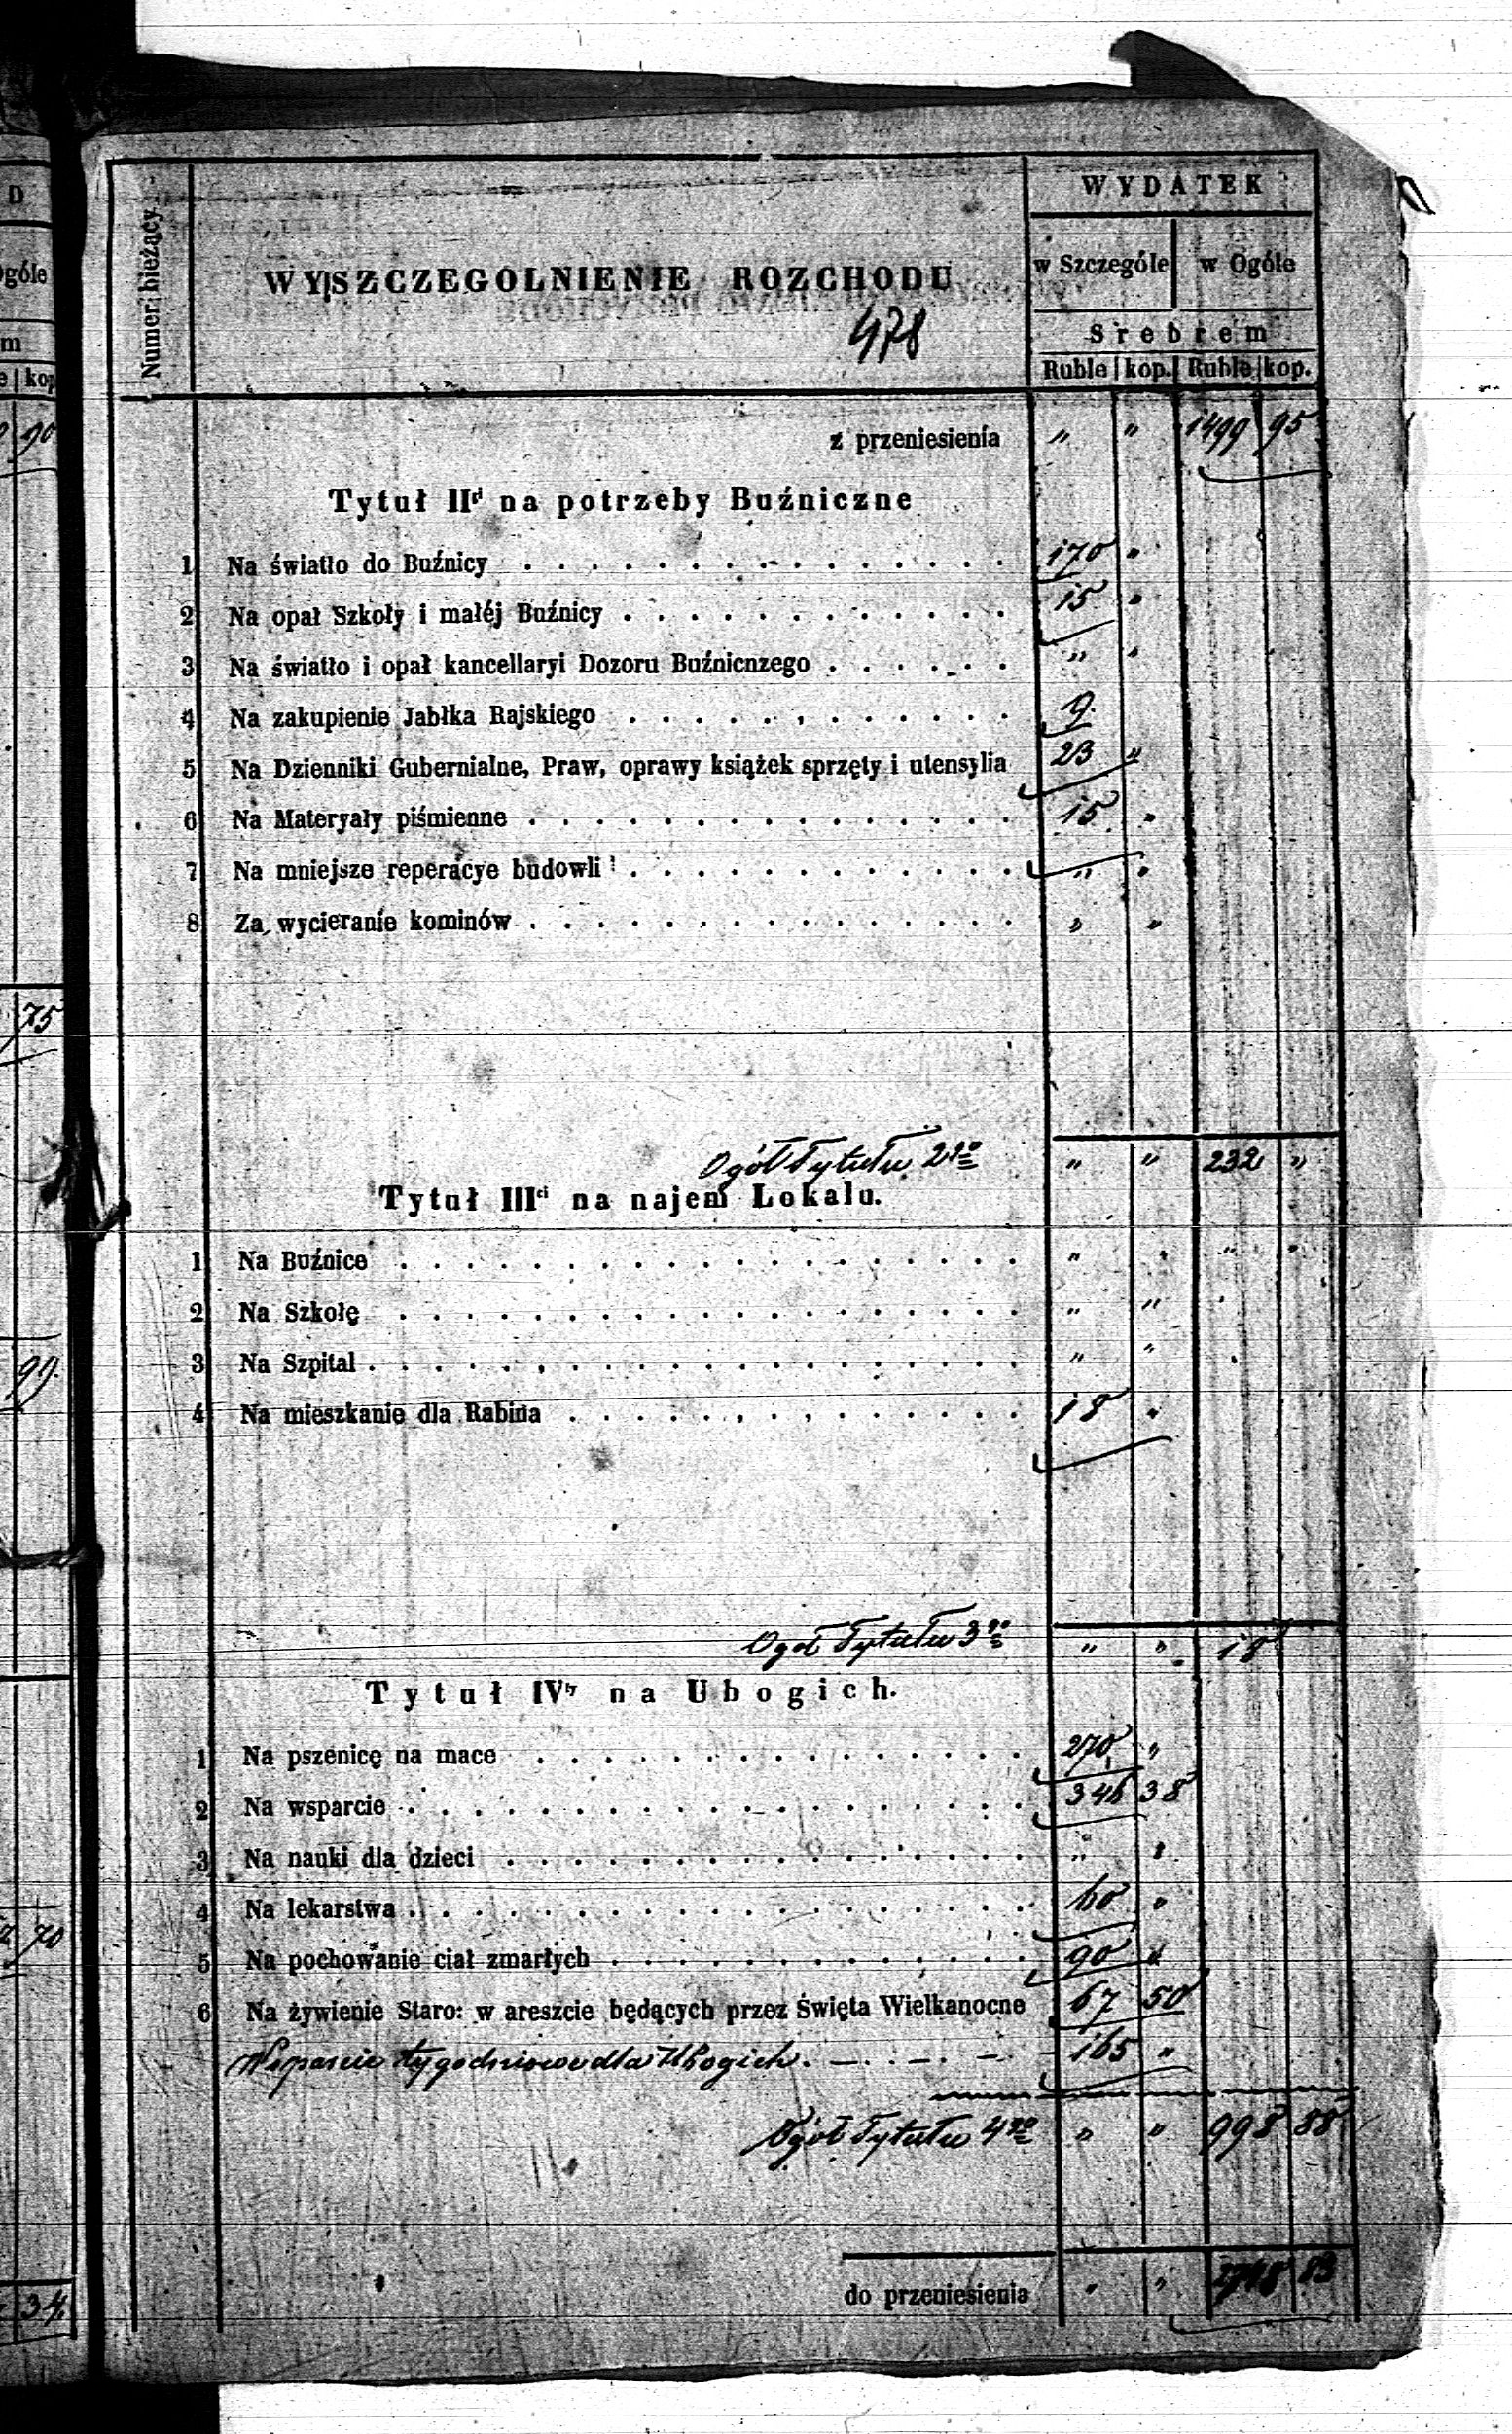 D
WYDATEK
Numer bieżący
WYSZCZEGOLNIENIE ROZCHODU
w Szczególe w Ogóle
478
Srebrem
Ruble kop. Ruble kop.
z przeniesienia " " 1499 95
Tytuł IIci na potrzeby Buźniczne
1 Na światło do Buźnicy 170 "
2 Na opał Szkoły i małéj Buźnicy 15 "
3 Na światło i opał kancellaryi Dozoru Buźnicnzego " "
4 Na zakupienie Jabłka Rajskiego 9
5 Na Dzienniki Gubernialne, Praw, oprawy książek sprzęty i utensylia 23 "
6 Na Materyały piśmienne 15 "
7 Na mniejsze reperacye budowli " "
8 Za wycieranie kominów " "
Ogół Tytułu 2go " " 232 "
Tytuł IIIci na najem Lokalu.
1 Na Buźnice " " " "
2 Na Szkołę " "
3 Na Szpital " "
4 Na mieszkanie dla Rabina 18 "
Ogół Tytułu 3go " " 18
Tytuł IVty na Ubogich.
1 Na pszenicę na mace 270 "
2 Na wsparcie 346 38
3 Na nauki dla dzieci " "
4 Na lekarstwa 60 "
5 Na pochowanie ciał zmarłych 90 "
6 Na żywienie Staro: w areszcie będących przez Święta Wielkanocne 67 50
Wsparcie tygodniowe dla Ubogich 165 "
Ogół Tytułu 4go " " 998 88
do przeniesienia " " 83